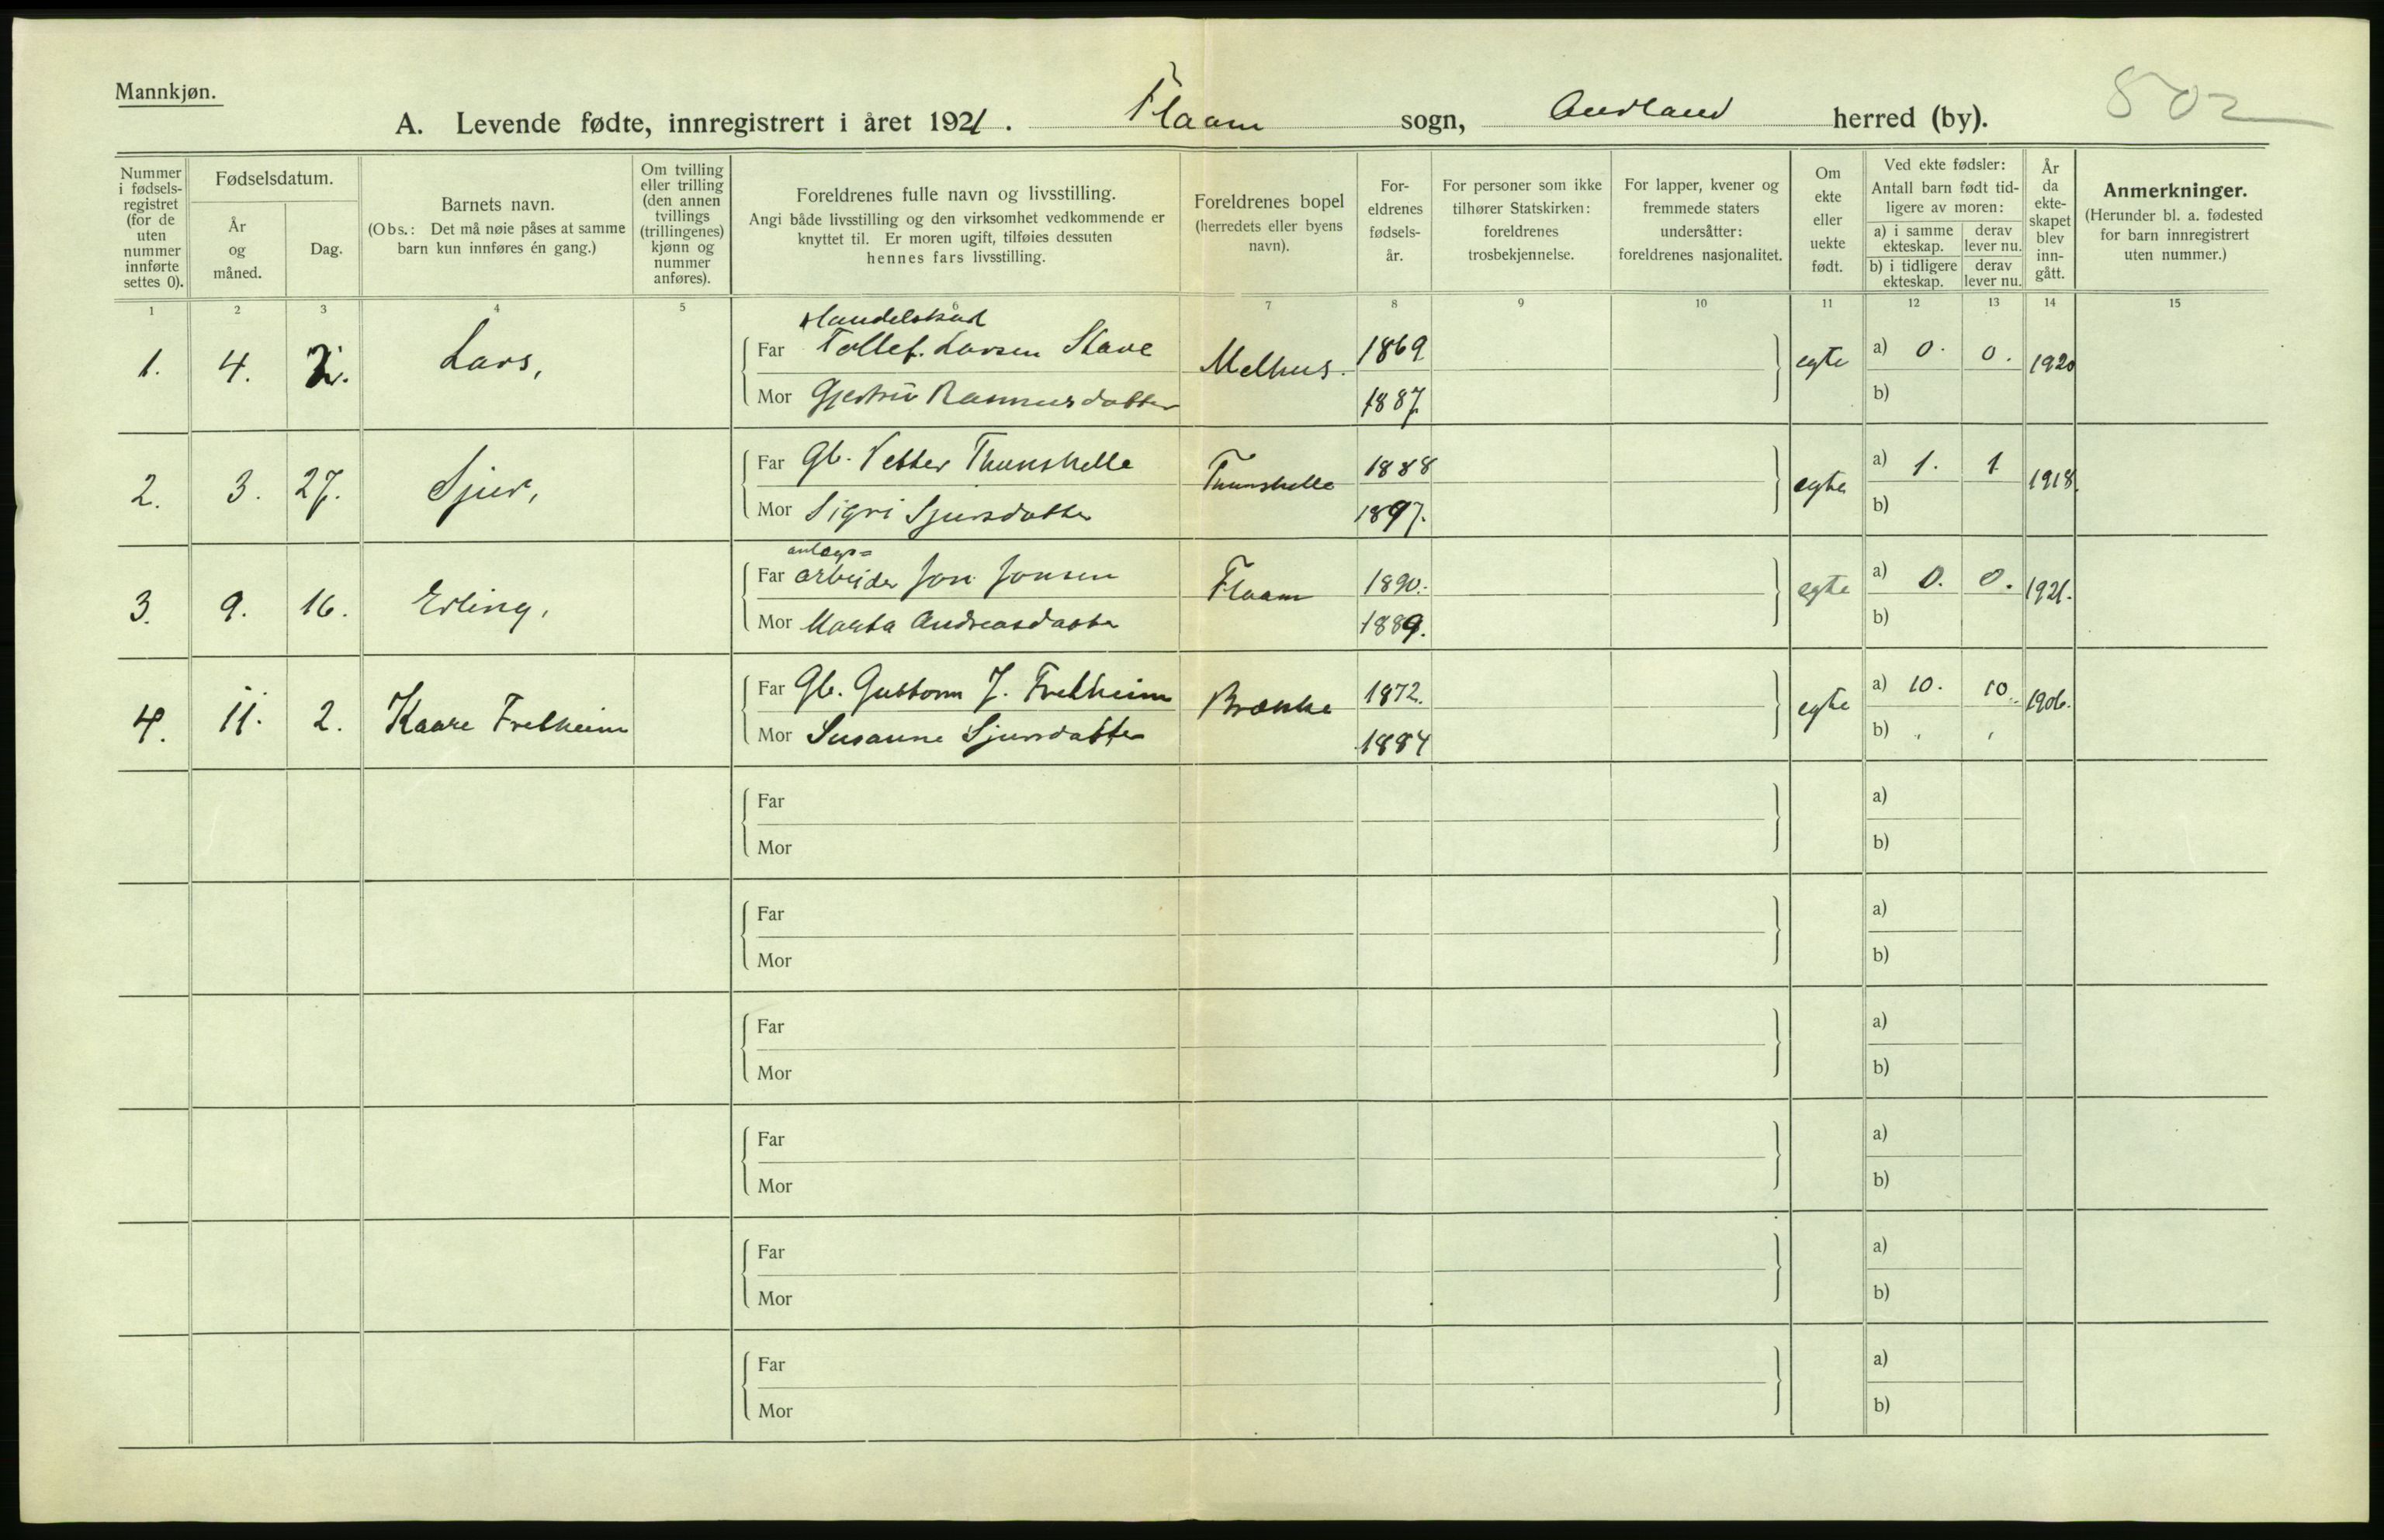 Mannkjøn.
A. Levende fødte, innregistrert i året 1921. Flaam sogn, Aurland herred (by). 502
Nummer i fødsels-registret (for de uten nummer innførte settes 0).
Fødselsdatum.
År og måned.
Dag.
Barnets navn.
(Obs.: Det må nøie påses at samme barn kun innføres én gang.)
Om tvilling eller trilling (den annen tvillings (trillingenes) kjønn og nummer anføres).
Foreldrenes fulle navn og livsstilling.
Angi både livsstilling og den virksomhet vedkommende er knyttet til. Er moren ugift, tilføies dessuten hennes fars livsstilling.
Foreldrenes bopel (herredets eller byens navn).
For-eldrenes fødsels-år.
For personer som ikke tilhører Statskirken: foreldrenes trosbekjennelse.
For lapper, kvener og fremmede staters undersåtter: foreldrenes nasjonalitet.
Om ekte eller uekte født.
Ved ekte fødsler:
Antall barn født tid-ligere av moren:
a) i samme ekteskap.
derav lever nu.
b) i tidligere ekteskap.
derav lever nu.
År da ekte-skapet blev inn-gått.
Anmerkninger.
(Herunder bl. a. fødested for barn innregistrert uten nummer.)
1 2 3 4 5 6 7 8 9 10 11 12 13 14 15
1. 4. 2. Lars,
Handelsbud
Far Tollef. Larsen Stave Melhus. 1869 egte a) 0. 0. 1920
Mor Gjertru Rasmusdatter 1887 b)
2. 3. 27. Sjur,
Far Gb. Petter Thunshelle Thunshelle 1888 egte a) 1. 1 1918.
Mor Sigri Sjursdatter 1897. b)
3. 9. 16. Erling,
anlegs=
Far arbeider Jon Jonsen Flaam 1890. egte a) 0. 0. 1921.
Mor Marta Andreasdatter 1889. b)
4. 11. 2. Kaare Fretheim
Far Gb. Guttorm J. Fretheim Brække 1872. egte a) 10. 10. 1906.
Mor Susanne Sjursdatter 1884 b) " "
Far a)
Mor b)
Far a)
Mor b)
Far a)
Mor b)
Far a)
Mor b)
Far a)
Mor b)
Far a)
Mor b)